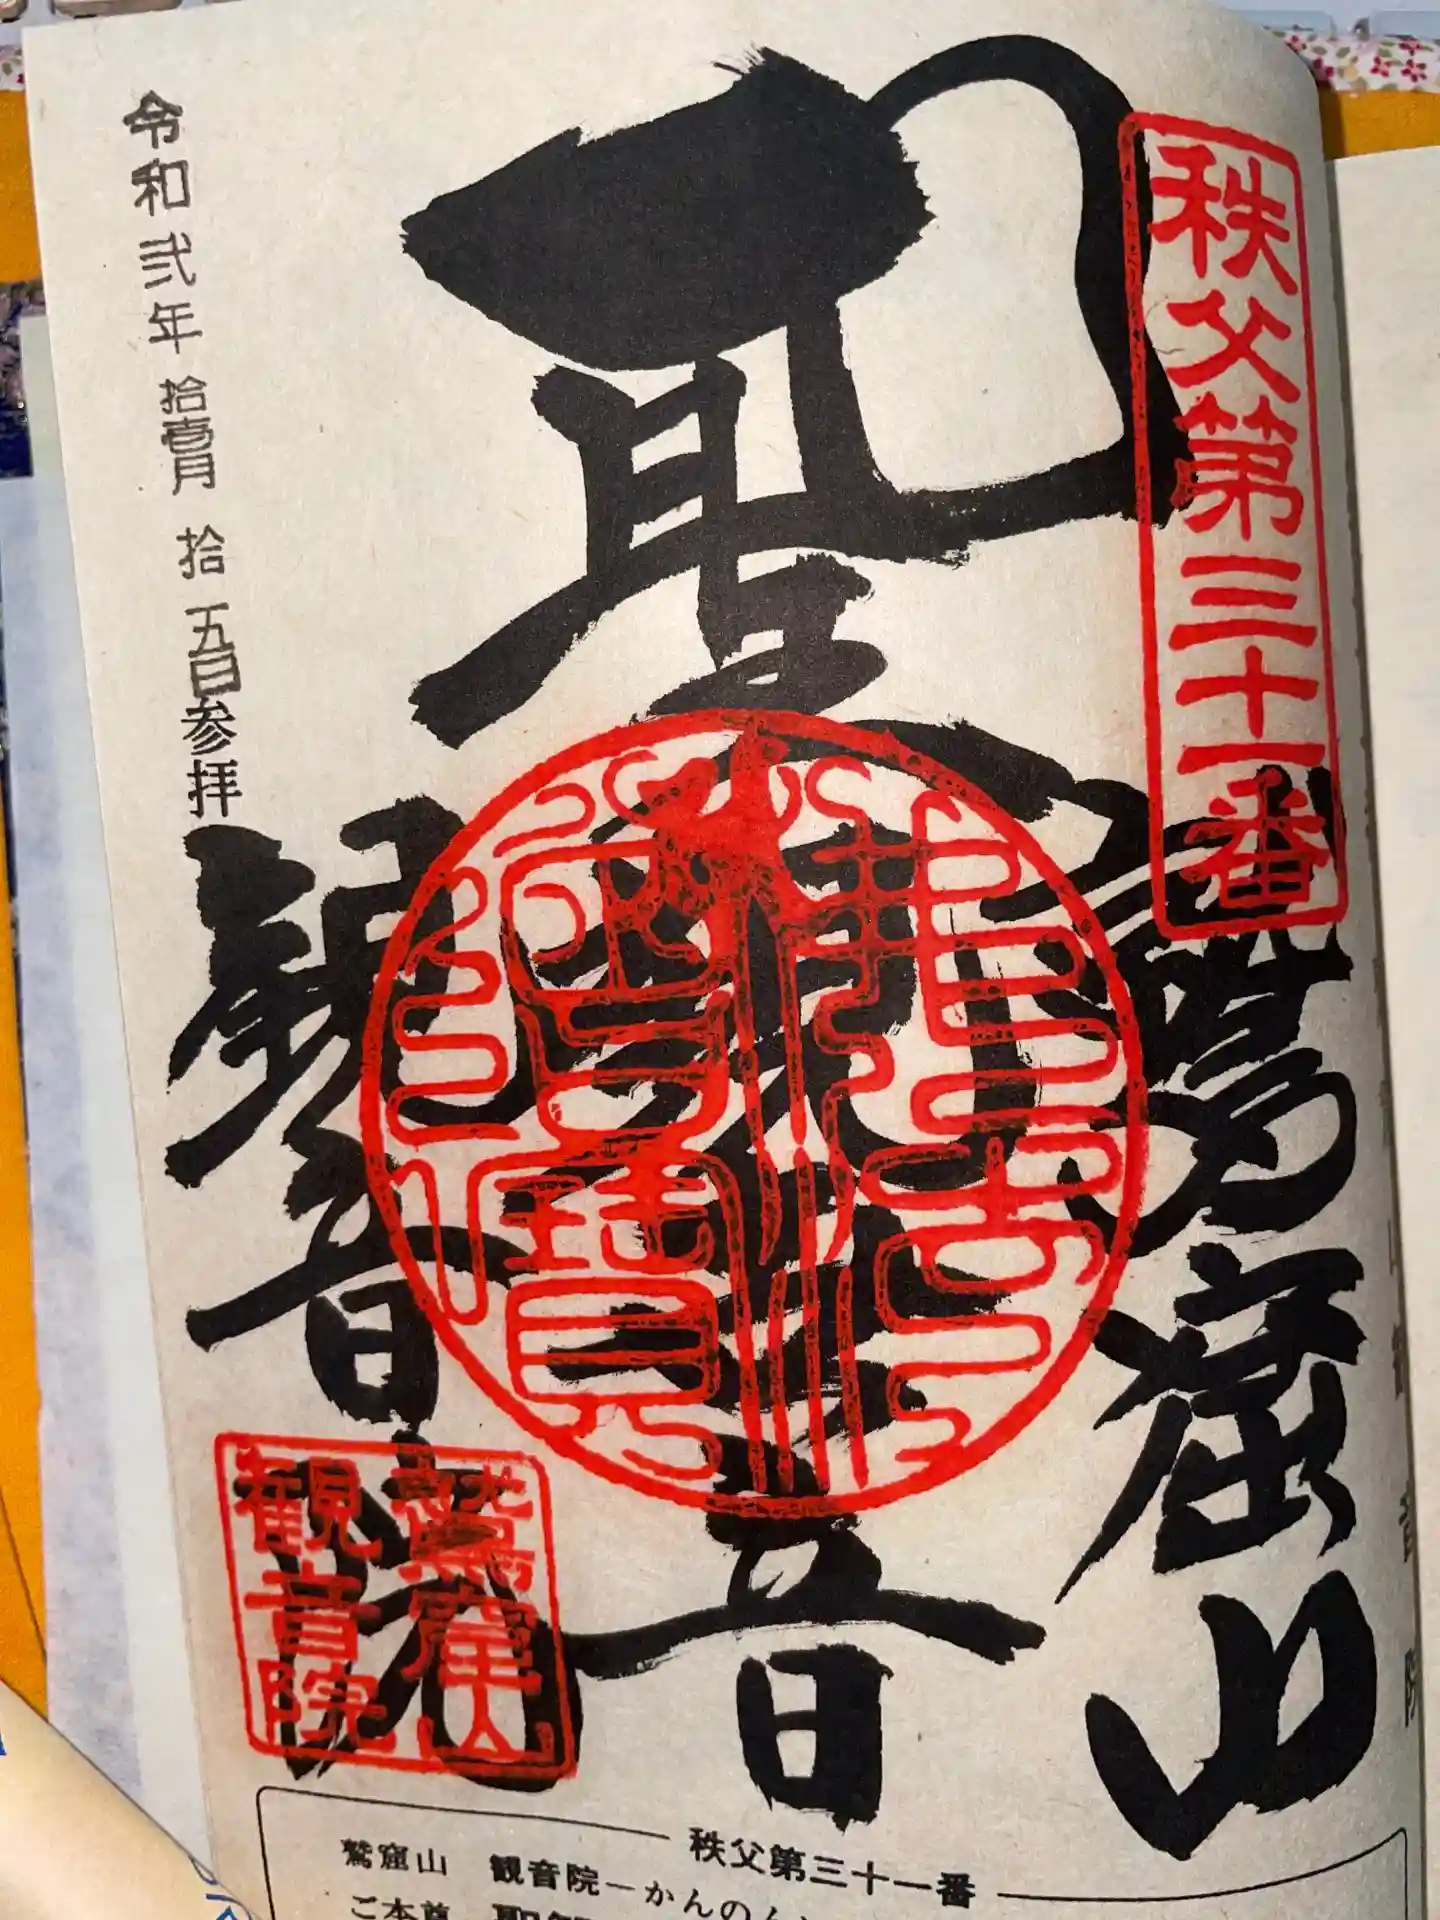 秩父第三十一番
鷲窟山
聖観音
観音院
令和弐年拾壹月拾五日参拝
佛法僧寶
鷲窟山
観音院
秩父第三十一番
鷲窟山 観音院—かんのん
ご本尊 聖観